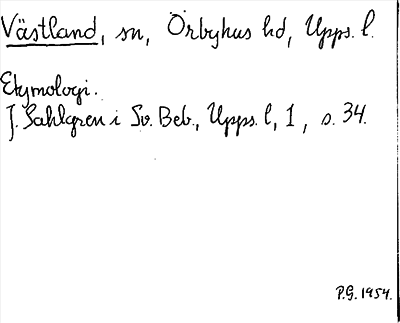 Västland, sn, Örbyhus hd, Upps. l.
Etymologi.
J. Sahlgren i Sv. Beb., Upps. l, 1, s. 34.
P.G. 1954.